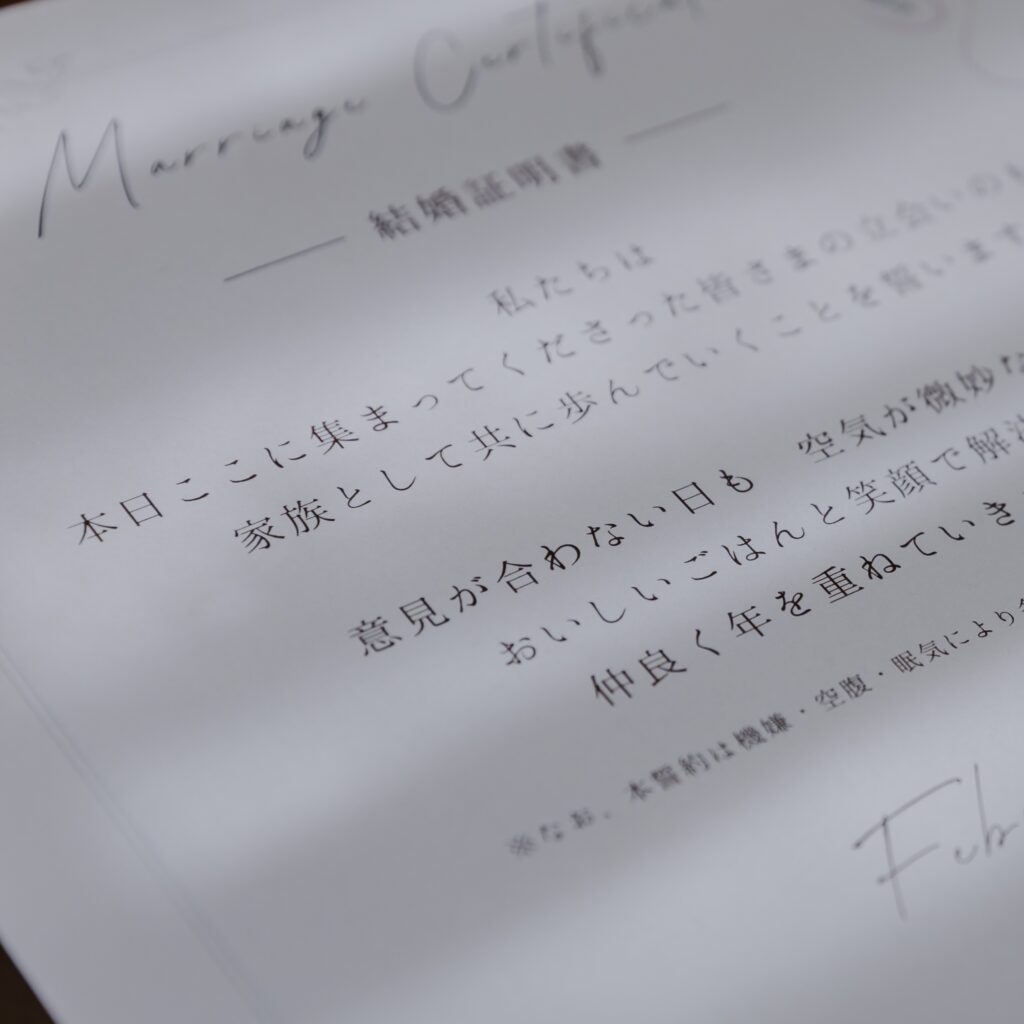 Marriage Certificat
結婚証明書
私たちは
本日ここに集まってくださった皆さまの立会いのも
家族として共に歩んでいくことを誓います
意見が合わない日も　空気が微妙な
おいしいごはんと笑顔で解決
仲良く年を重ねていき
※なお、本誓約は機嫌・空腹・眠気により
Feb